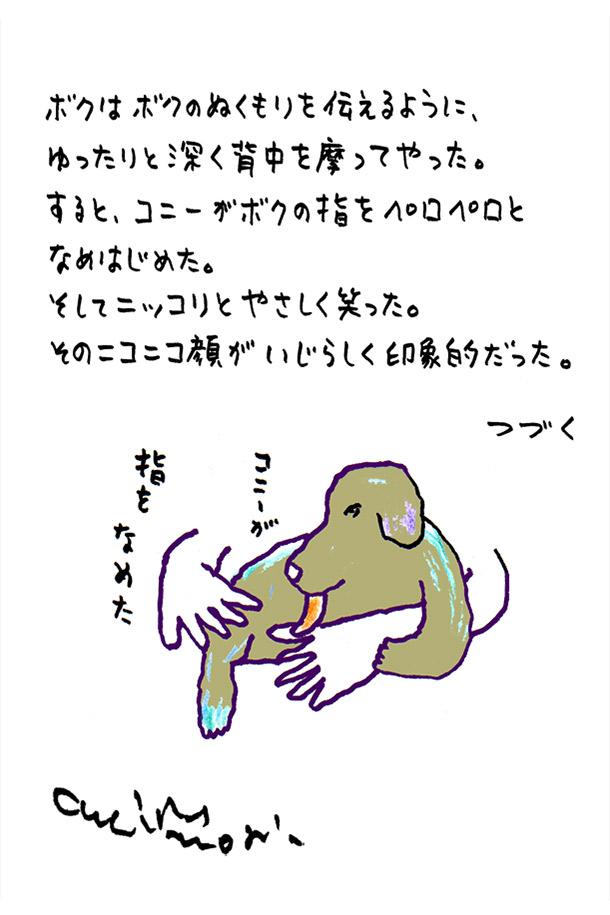 ボクは ボクのぬくもりを伝えるように、
ゆったりと深く背中を摩ってやった。
すると、コニーがボクの指をペロペロと
なめはじめた。
そしてニッコリとやさしく笑った。
そのニコニコ顔が いじらしく印象的だった。
つづく
コニーが
指を なめた